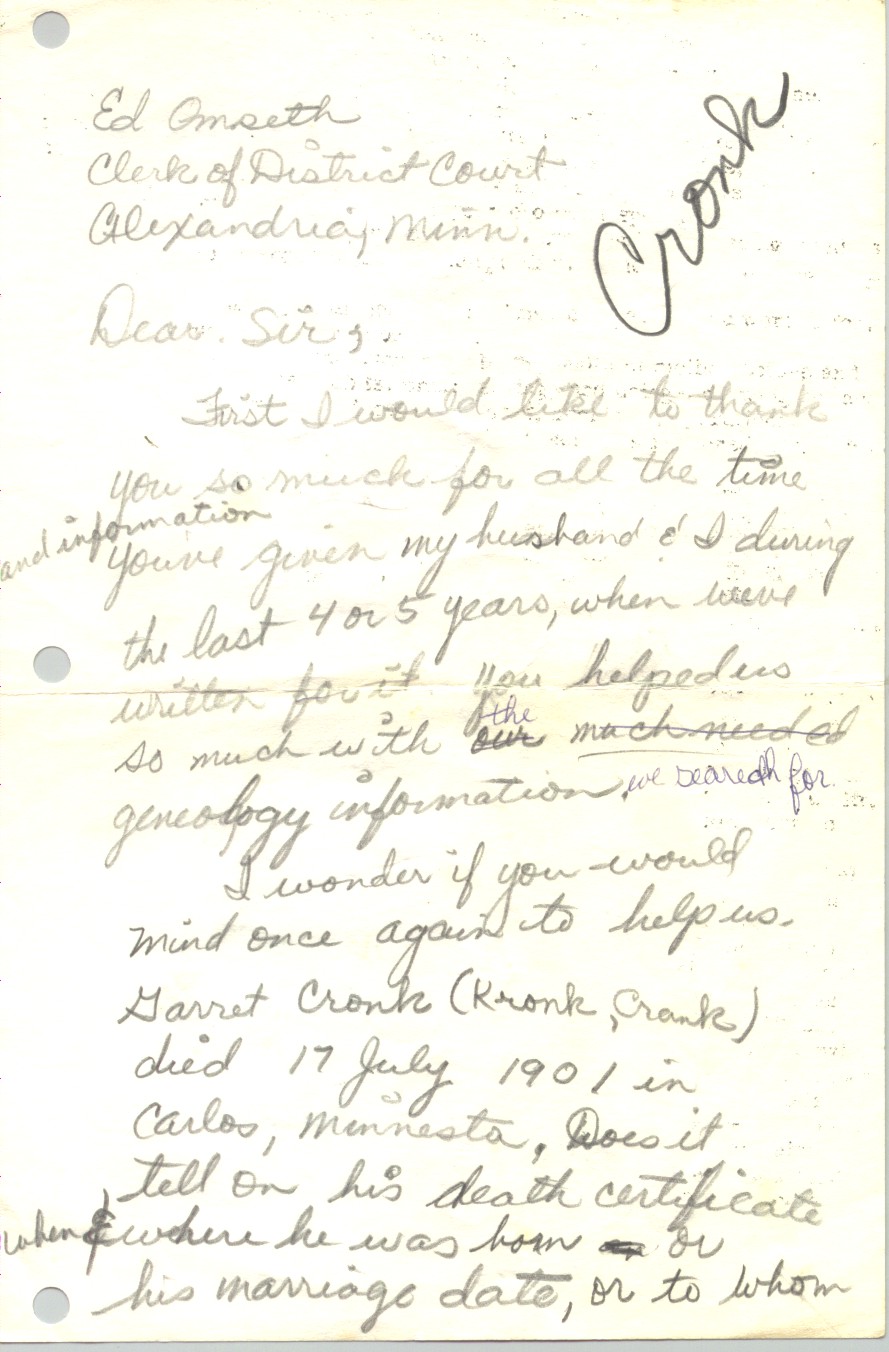 Cronk
Ed Omseth
Clerk of District Court
Alexandria, Minn.
Dear Sir,
First I would like to thank
you so much for all the time
and information
you've given my husband & I during
the last 4 or 5 years, when we've
written for it. You helped us
the
so much with our much needed
geneology information. we search for
I wonder if you would
mind once again to help us.
Garret Cronk (Kronk, Crank)
died 17 July 1901 in
Carlos, Minnesta. Does it
tell on his death certificate
when & where he was born or
his marriage date, or to whom